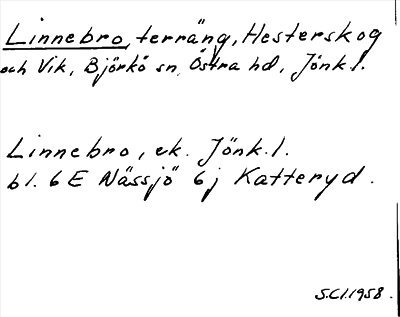 Linnebro, terräng, Hesterskog
och Vik, Björkö sn, Östra hd, Jönk.l.
Linnebro, ek. Jönk.l.
bl. 6E Nässjö 6j Katteryd.
S.Cl.1958.